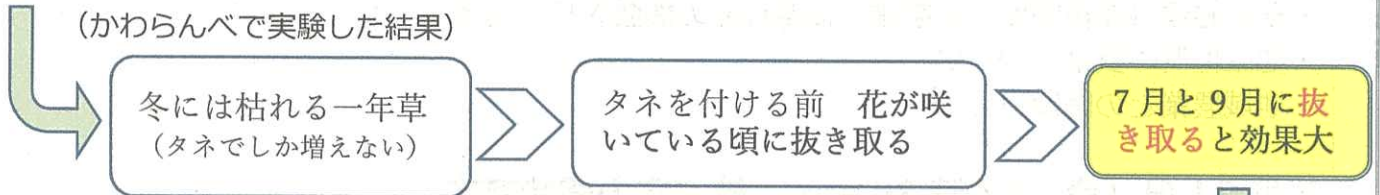 (かわらんべで実験した結果)
冬には枯れる一年草
(タネでしか増えない)
タネを付ける前　花が咲
いている頃に抜き取る
7月と9月に抜
き取ると効果大